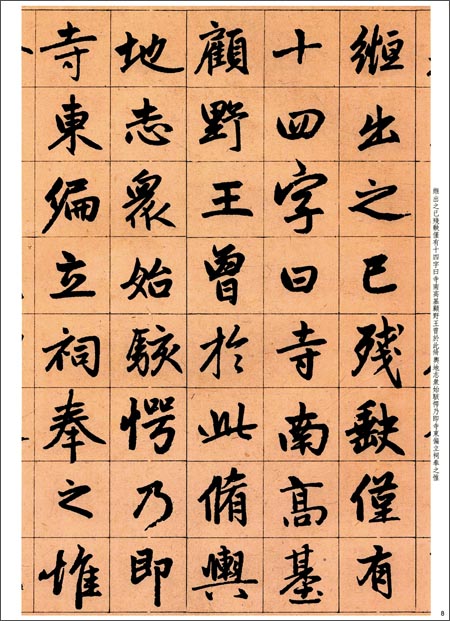 縆出之已殘缺僅有
十四字曰寺南高基
顧野王曾於此脩輿
地志眾始駭愕乃即
寺東偏立祠奉之惟
出之已殘缺僅有十四字曰寺南高基顧野王曾於此脩輿地志眾始駭愕乃即寺東偏立祠奉之惟
8